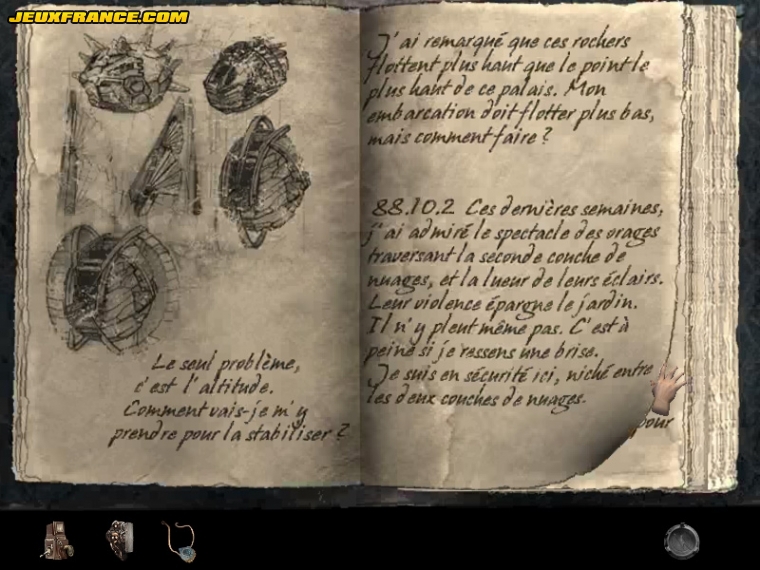 JEUXFRANCE.COM
Le seul problème,
c'est l'altitude.
Comment vais-je m'y
prendre pour la stabiliser ?
J'ai remarqué que ces rochers
flottent plus haut que le point le
plus haut de ce palais. Mon
embarcation doit flotter plus bas,
mais comment faire ?
88.10.2 Ces dernières semaines,
j'ai admiré le spectacle des orages
traversant la seconde couche de
nuages, et la lueur de leurs éclairs.
Leur violence épargne le jardin.
Il n'y pleut même pas. C'est à
peine si je ressens une brise.
Je suis en sécurité ici, niché entre
les deux couches de nuages.
pour